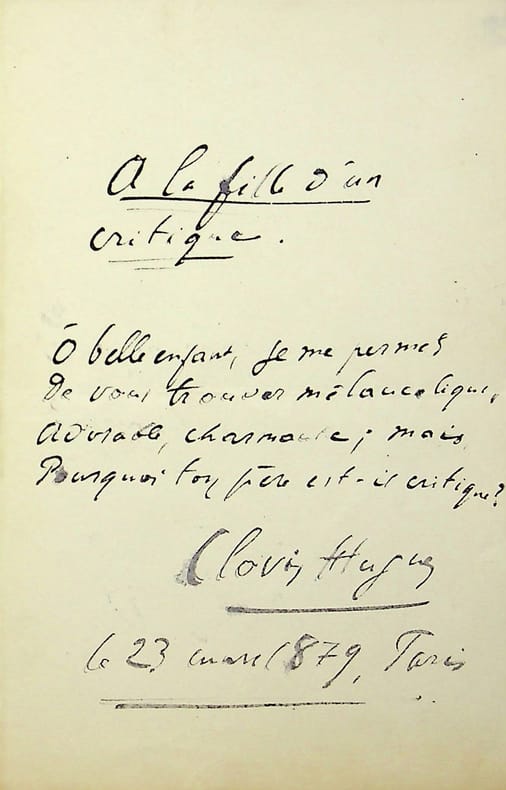 A la fille d'un
critique.
Ô belle enfant, je me permets
De vous trouver mélancolique,
Adorable, charmante ; mais
Pourquoi ton père est-il critique ?
Clovis Hugues
le 23 mars 1879, Paris